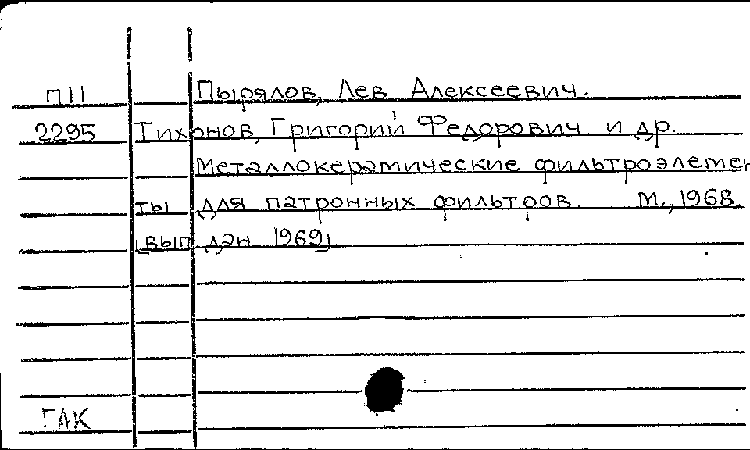 П11 Пырялов, Лев Алексеевич.
2295 Тихонов, Григорий Федорович и др.
Металлокерамические фильтроэлемен
ты для патронных фильтров. М., 1968.
[вып. дан. 1969]
ГАК